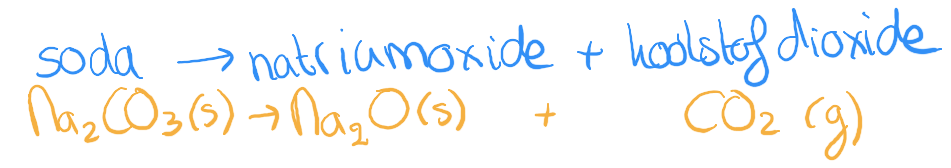 soda → natriumoxide + koolstofdioxide
Na₂CO₃(s) → Na₂O(s) + CO₂ (g)